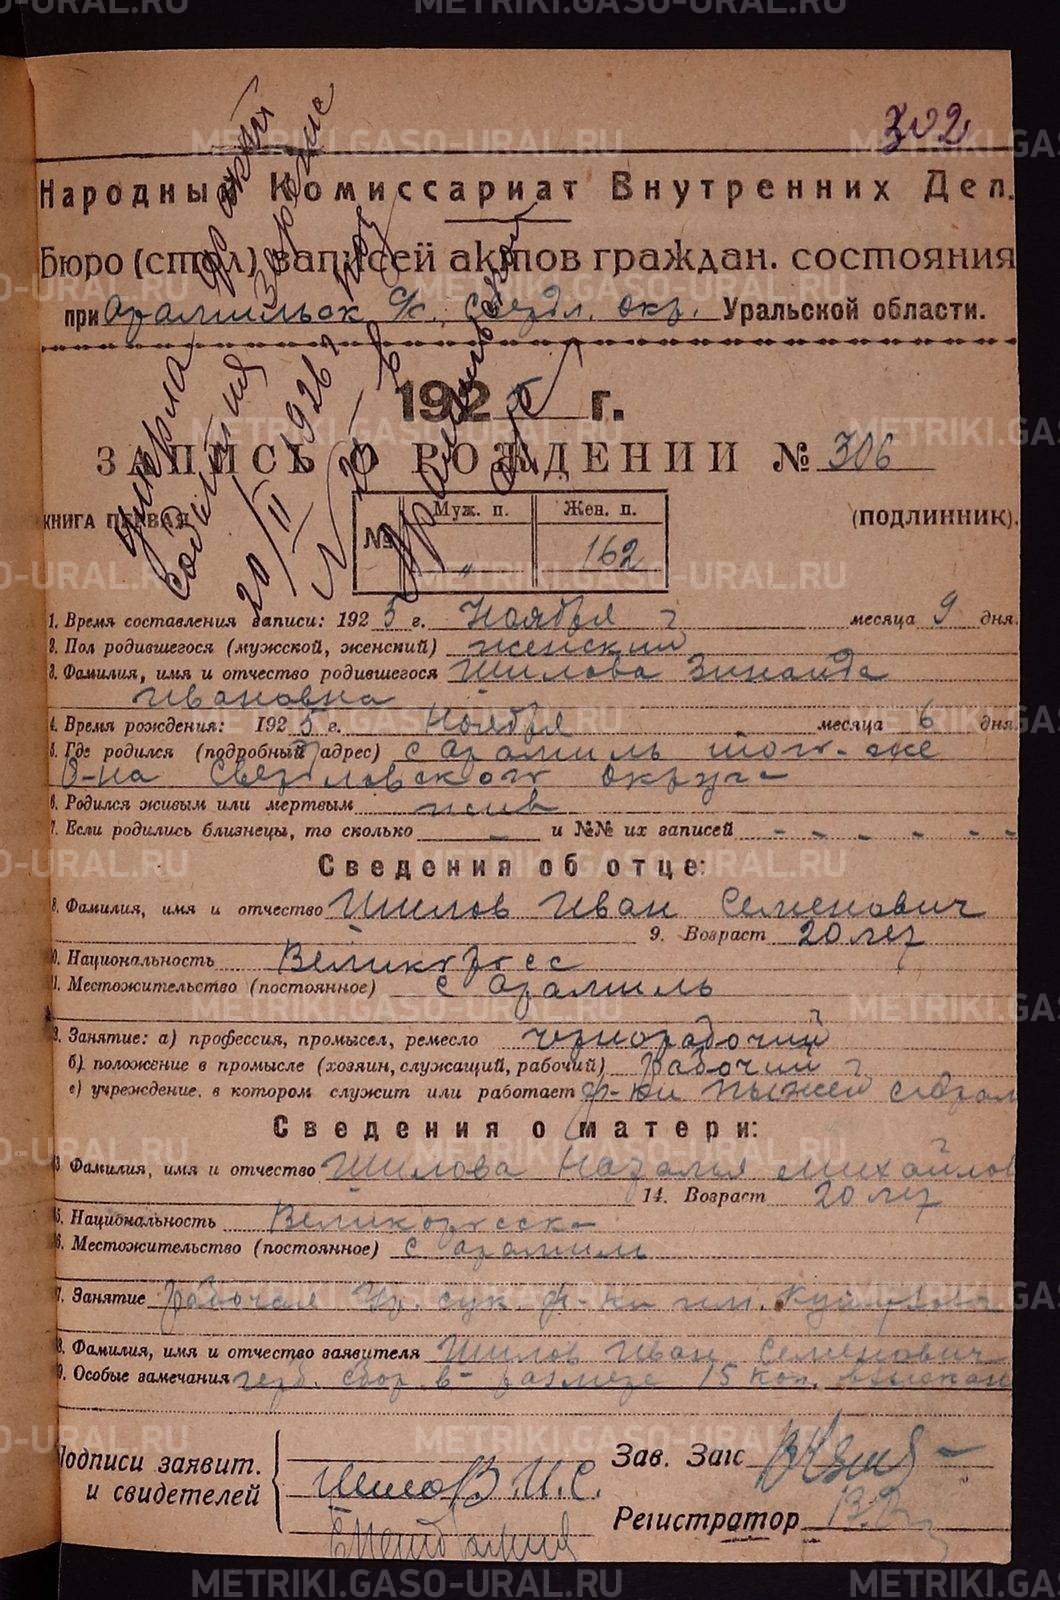 302
Народный Комиссариат Внутренних Дел.
Бюро (стол) записей актов граждан. состояния
при Арамильск Свердл. окр. Уральской области.
1925 г.
ЗАПИСЬ О РОЖДЕНИИ № 306
КНИГА ПЕРВАЯ (ПОДЛИННИК).
№ Муж. п. „ Жен. п. 162
умерла
20/II 1926 г
1. Время составления записи: 1925 г. Ноября месяца 9 дня.
2. Пол родившегося (мужской, женский) женский
3. Фамилия, имя и отчество родившегося Шилова Зинаида
Ивановна
4. Время рождения: 1925 г. Ноября месяца 6 дня.
5. Где родился (подробный адрес) с Арамиль того-же
р-на Свердловского округа
6. Родился живым или мертвым жив
7. Если родились близнецы, то сколько – и №№ их записей - - - - - -
Сведения об отце:
8. Фамилия, имя и отчество Шилов Иван Семенович
9. Возраст 20 лет
10. Национальность Великоросс
11. Местожительство (постоянное) с Арамиль
13. Занятие: а) профессия, промысел, ремесло чернорабочий
б) положение в промысле (хозяин, служащий, рабочий) рабочий
в) учреждение, в котором служит или работает ф-ки пыжей с Арам
Сведения о матери:
13. Фамилия, имя и отчество Шилова Наталья Михайлов
14. Возраст 20 лет
15. Национальность Великоросска
16. Местожительство (постоянное) с Арамиль
17. Занятие рабочая Ур. сук. ф-ки им.
18. Фамилия, имя и отчество заявителя Шилов Иван Семенович
19. Особые замечания герб. сбор в размере 15 коп. взыскан
Подписи заявит.
и свидетелей
Шилов И. С.
Зав. Загс
Регистратор
METRIKI.GASO-URAL.RU